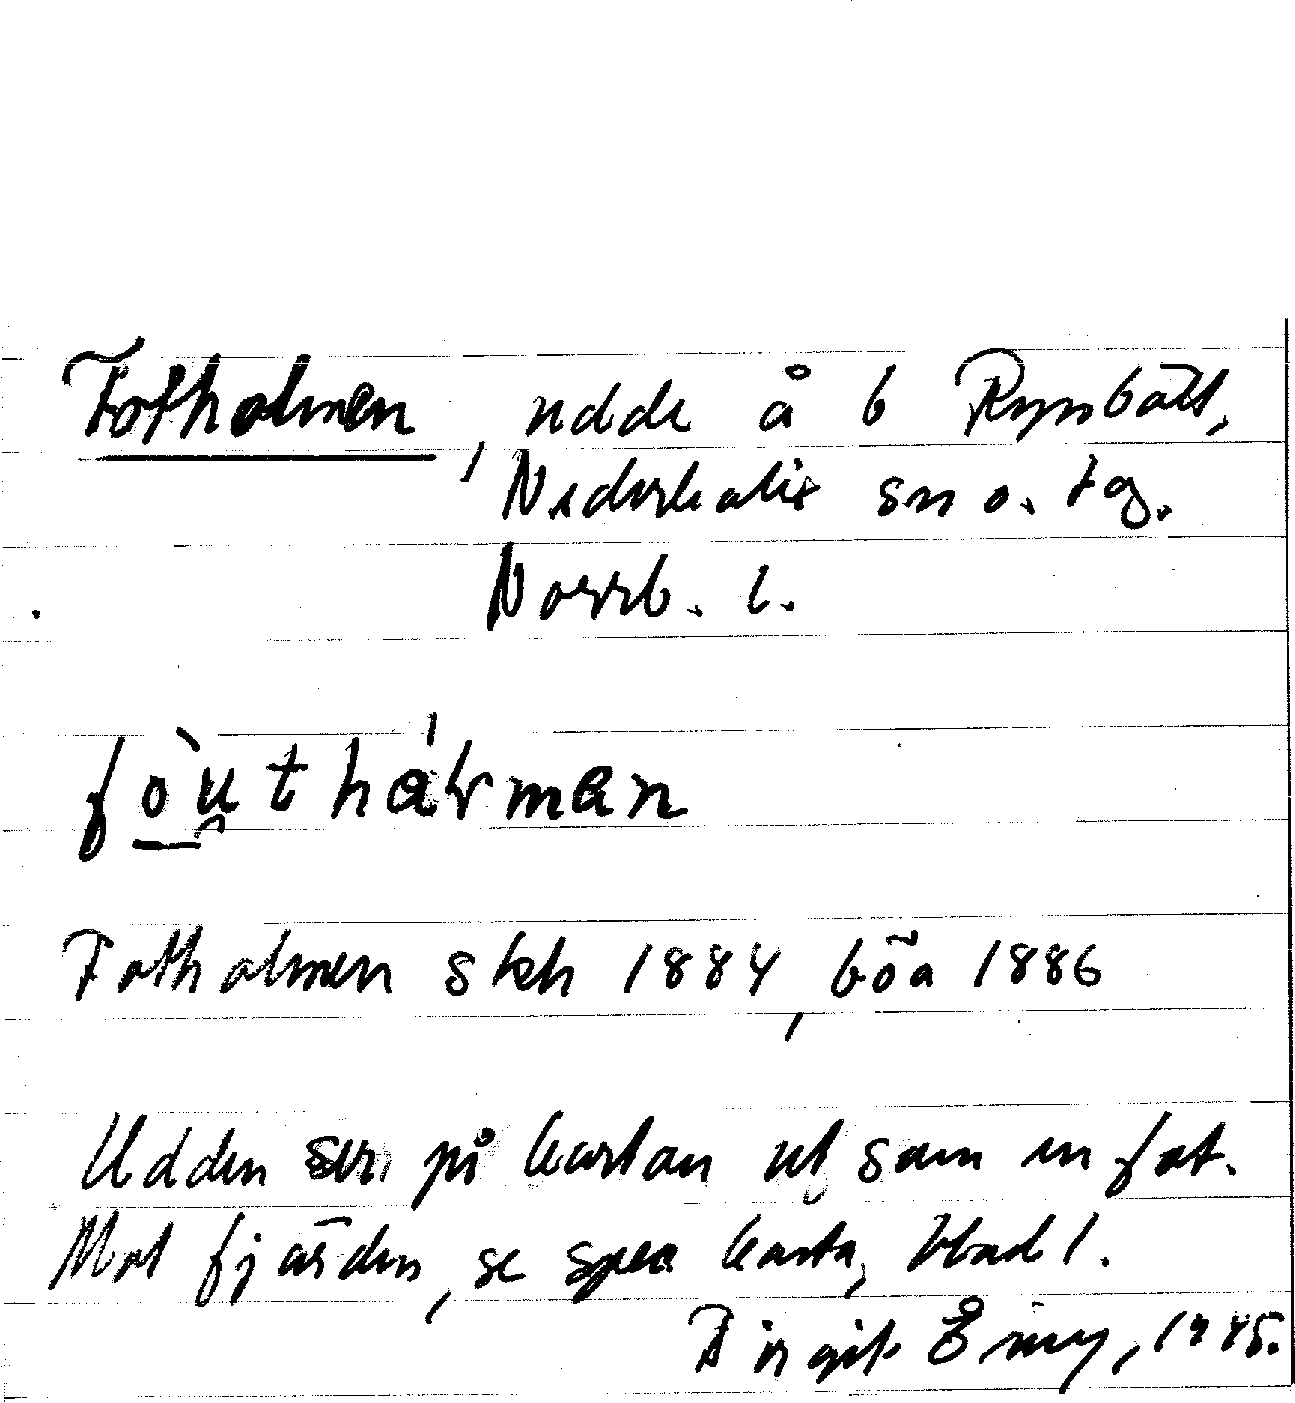 Fotholmen, udde å b Rynbäck,
Nederkalix sn o. tg.
Norrb. l.
fòu̯thál'men
Fotholmen skh 1884, böa 1886
Udden ser på kartan ut som en fot.
Mot fjärden, se spec karta, blad 1.
Birgit 1985.